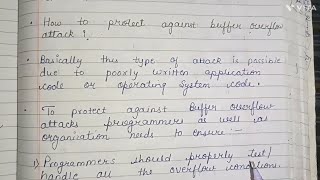 How to protect against buffer overflow
attack?
Basically this type of attack is possible
due to poorly written application
code or operating system code.
To protect against Buffer overflow
attacks programmers as well as
organisation needs to ensure:-
1) Programmers should properly test/
handle all the overflow conditions.